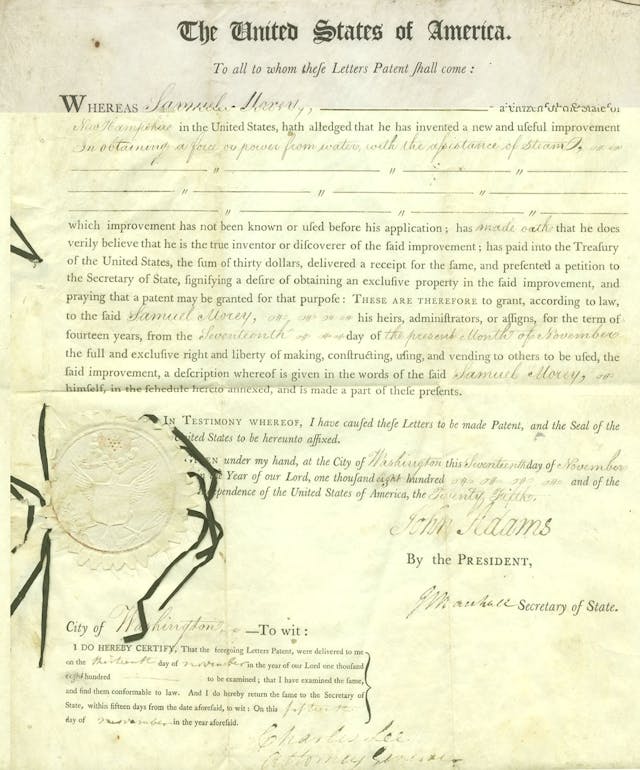 The United States of America.
To all to whom theſe Letters Patent ſhall come :
WHEREAS Samuel Morey, a citizen of the State of
New Hampshire in the United States, hath alledged that he has invented a new and uſeful improvement
In obtaining a force or power from water, with the assistance of Steam,
which improvement has not been known or uſed before his application ; has made oath that he does
verily believe that he is the true inventor or diſcoverer of the ſaid improvement ; has paid into the Treaſury
of the United States, the ſum of thirty dollars, delivered a receipt for the ſame, and preſented a petition to
the Secretary of State, ſignifying a deſire of obtaining an excluſive property in the ſaid improvement, and
praying that a patent may be granted for that purpoſe : THESE ARE THEREFORE to grant, according to law,
to the ſaid Samuel Morey, his heirs, adminiſtrators, or aſſigns, for the term of
fourteen years, from the Seventeenth day of the present Month of November
the full and excluſive right and liberty of making, conſtructing, uſing, and vending to others to be uſed, the
ſaid improvement, a deſcription whereof is given in the words of the ſaid Samuel Morey,
himſelf, in the ſchedule hereto annexed, and is made a part of theſe preſents.
IN TESTIMONY WHEREOF, I have cauſed theſe Letters to be made Patent, and the Seal of the
United States to be hereunto affixed.
GIVEN under my hand, at the City of Washington this Seventeenth day of November
in the Year of our Lord, one thouſand eight hundred and of the
Independence of the United States of America, the Twenty Fifth.
John Adams
By the PRESIDENT,
J Marshall Secretary of State.
City of Washington, —To wit :
I DO HEREBY CERTIFY, That the foregoing Letters Patent, were delivered to me
on the thirteenth day of november in the year of our Lord one thouſand
eight hundred to be examined ; that I have examined the ſame,
and find them conformable to law. And I do hereby return the ſame to the Secretary of
State, within fifteen days from the date aforeſaid, to wit : On this fifteenth
day of november in the year aforeſaid.
Charles Lee
Attorney General